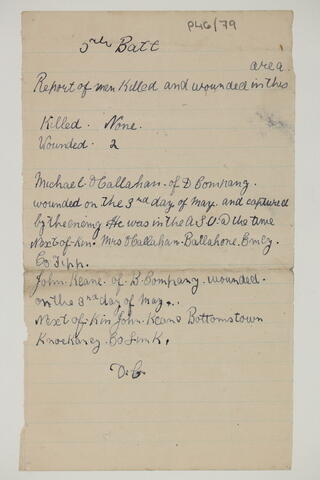 P46/79
5th Batt
area
Report of men Killed and wounded in this
Killed. None.
Wounded. 2
Michael O Callahan. of D Company.
wounded on the 3rd day of May. and captured
by the enemy. He was in the A S U. @ the time
Next-of-Kin. Mrs O Callahan. Ballahone. Emly.
Co Tipp.
John. Keane. of B. Company. wounded.
on the 3rd day of May.
Next of-Kin John. Keane Bottomstown
Knockaney. Co Limk.
O.C.